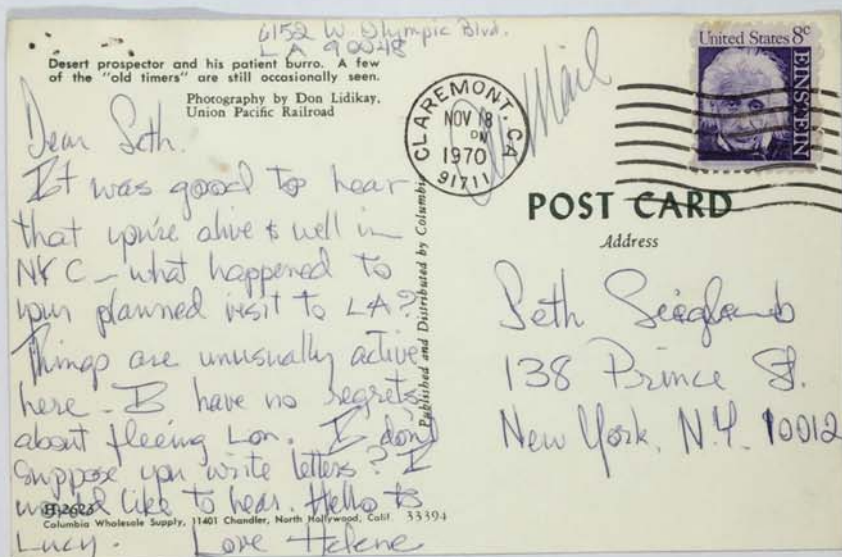 6152 W. Olympic Blvd.
LA 90048
Desert prospector and his patient burro. A few
of the "old timers" are still occasionally seen.
Photography by Don Lidikay,
Union Pacific Railroad
Dear Seth.
It was good to hear
that you're alive & well in
NYC – what happened to
your planned visit to LA?
Things are unusually active
here – I have no regrets
about fleeing Lon. I don't
suppose you write letters? I
would like to hear. Hello to
Lucy. Love Helene
H-2623
Columbia Wholesale Supply, 11401 Chandler, North Hollywood, Calif. 33394
Published and Distributed by Columbia
CLAREMONT, CA
NOV 18
PM
1970
91711
Air Mail
United States 8c
EINSTEIN
POST CARD
Address
Seth
138 Prince St.
New York, N.Y. 10012